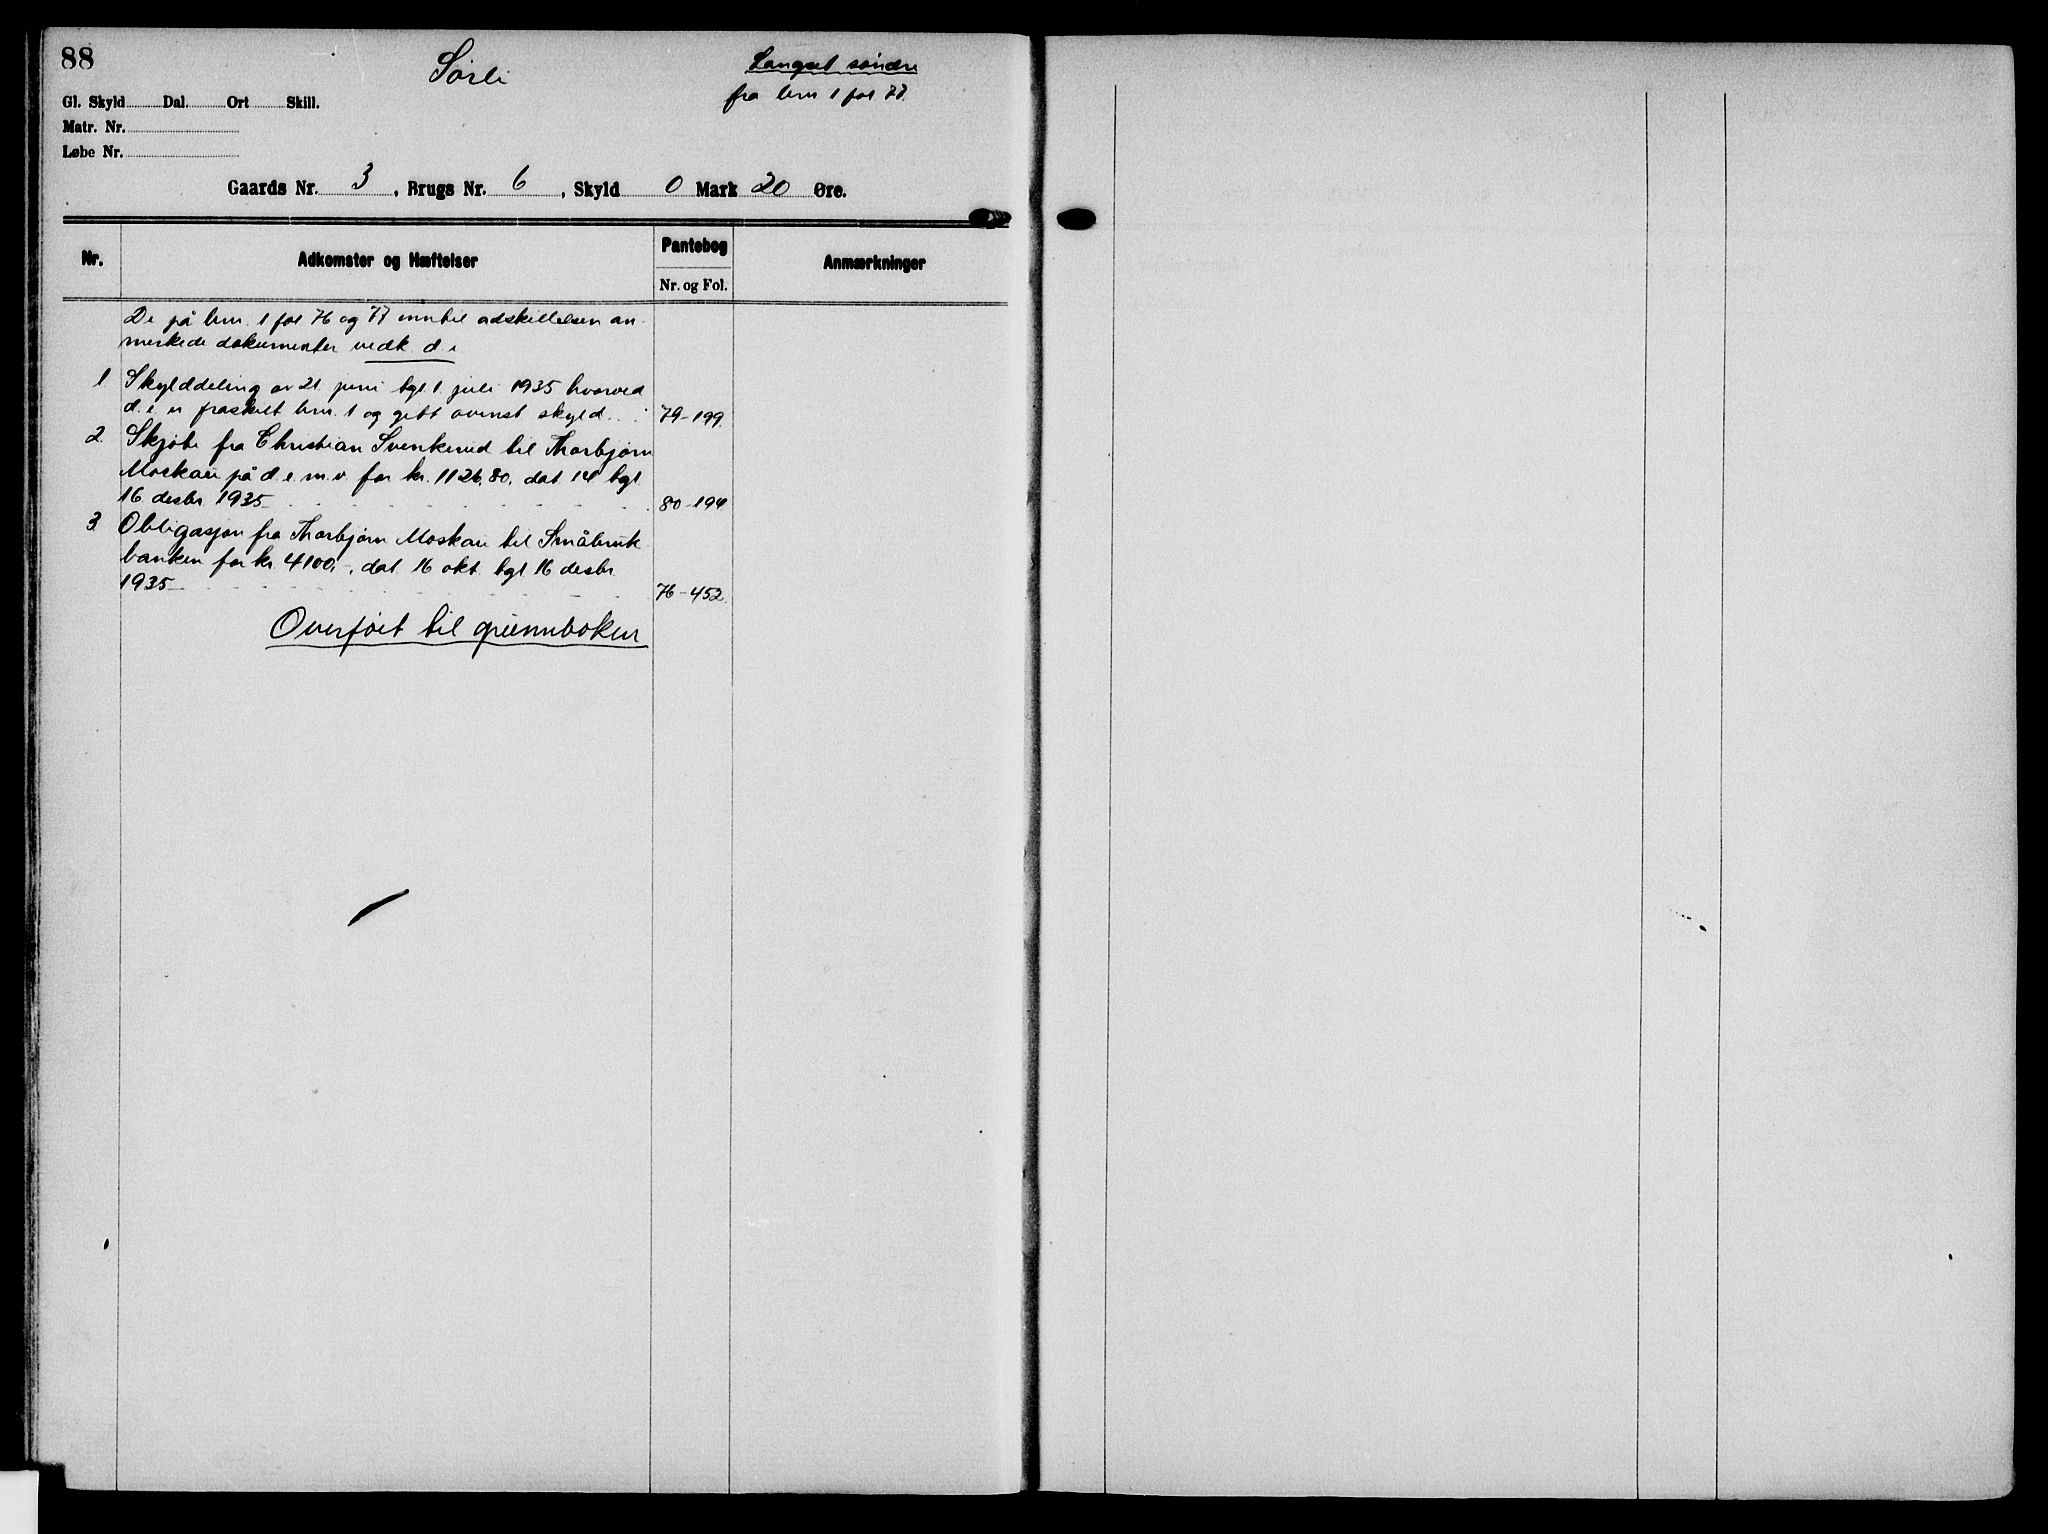 88
Sørli
Langset søndre
fra brn 1 fol 77.
Gl. Skyld Dal. Ort Skill.
Matr. Nr.
Løbe Nr.
Gaards Nr. 3, Brugs Nr. 6, Skyld 0 Mark 20 Øre.
Nr. Adkomster og Hæftelser Pantebog Anmærkninger
Nr. og Fol.
De på brn. 1 fol 76 og 77 inntil adskillelsen an-
merkede dokumenter vedk d. e.
1 Skylddeling av 21 juni tgl 1 juli 1935 hvorved
d. e. er fraskilt brn. 1 og gitt ovenst skyld. 79-199.
2 Skjøte fra Christian Svenkerud til Thorbjørn
Moskau på d. e. m. v. for kr. 1126,80, dat 14 tgl
16 desbr 1935 80-194
3 Obligasjon fra Thorbjørn Moskau til Småbruk-
banken for kr. 4100,-, dat 16 okt. tgl 16 desbr
1935 76-452.
Overført til grunnboken